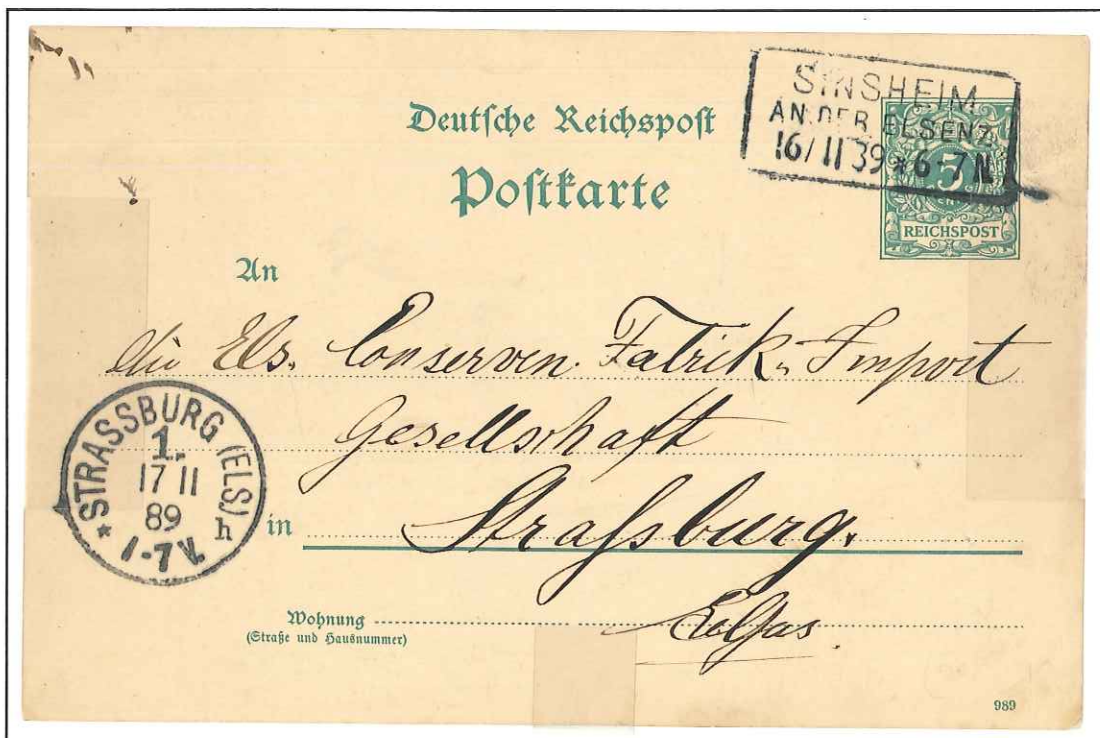 Deutsche Reichspost
Postkarte
SINSHEIM
AN DER ELSENZ
16/11 89 * 6-7 N.
5
REICHSPOST
An
die Els. Conserven. Fabrik u. Import
Gesellschaft
in Straßburg.
Elsas
STRASSBURG (ELS)
1.
17 11
89
1-7 V.
* h
Wohnung
(Straße und Hausnummer)
989